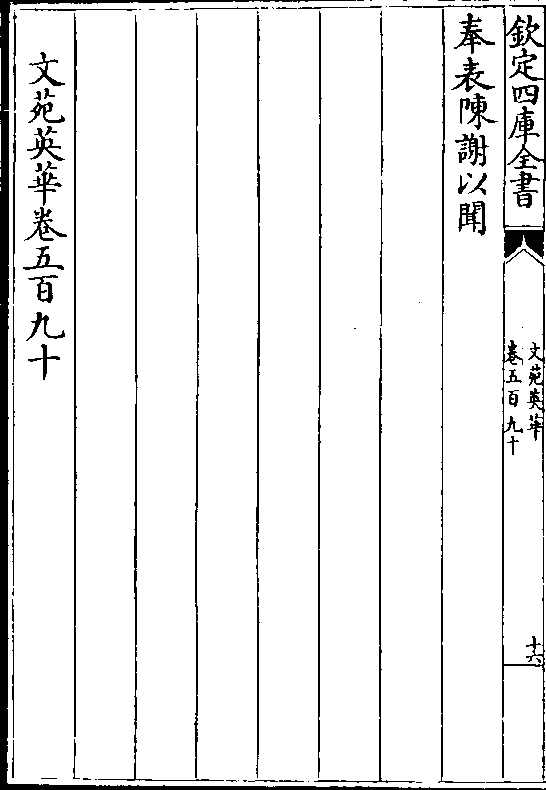 欽定四庫全書
文苑英華
卷五百九十
十六
奉表陳謝以聞
文苑英華卷五百九十